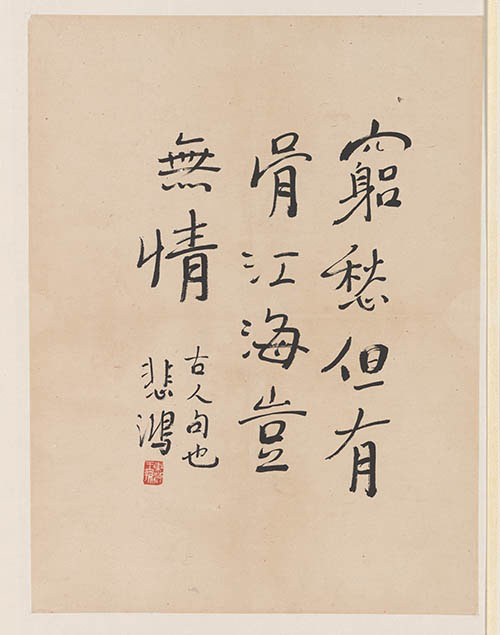 竆愁但有
骨江海豈
無情
古人句也
悲鴻